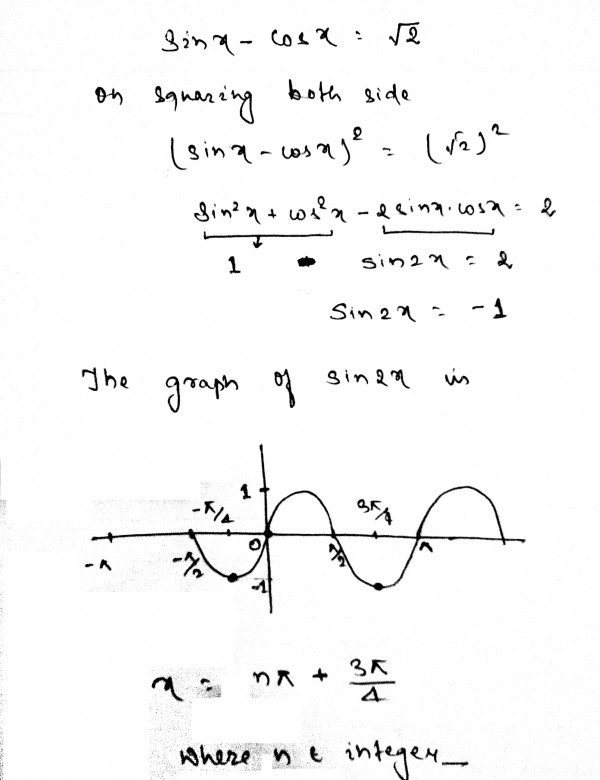 sinx - cosx = √2
on squaring both side
(sinx - cosx)² = (√2)²
sin²x + cos²x - 2sinx.cosx = 2
1 - sin2x = 2
sin2x = -1
The graph of sin2x is
1
-π/4
3π/4
-π
-π/2
0
π/2
π
-1
x = nπ + 3π/4
where n ϵ integer